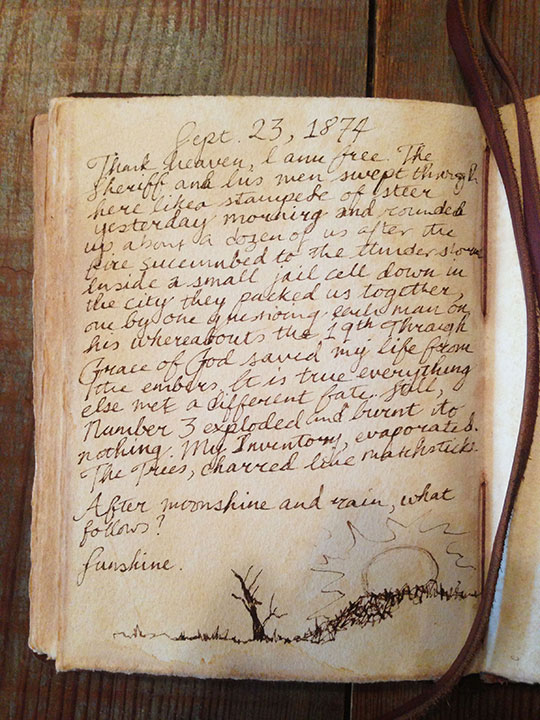 Sept. 23, 1874
Thank Heaven, I am free. The
Sheriff and his men swept through
here like a stampede of steer
yesterday morning and rounded
up about a dozen of us after the
fire succumbed to the thunderstorm
Inside a small jail cell down in
the city they packed us together,
one by one quesioning each man on
his whereabouts the 19th Through
Grace of God saved my life from
the embers. It is true everything
else met a different fate. Still,
Number 3 exploded and burnt to
nothing. My Inventory, evaporated.
The Trees, charred like matchsticks.
After moonshine and rain, what
follows?
Sunshine.